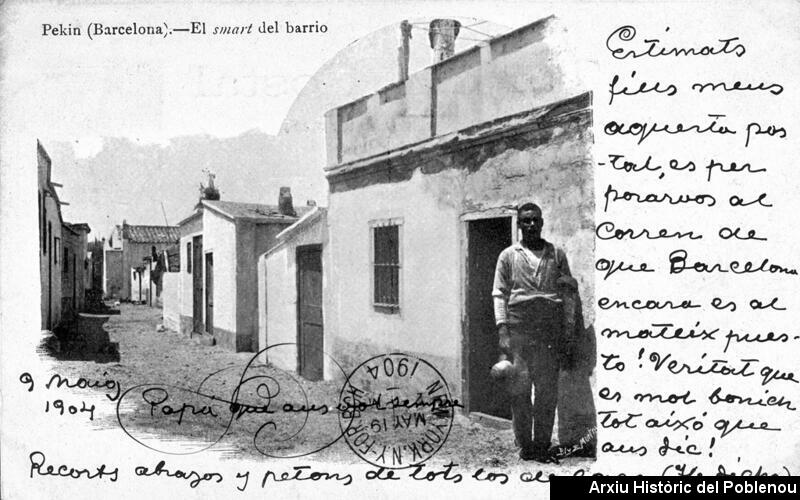 Pekin (Barcelona).—El smart del barrio
Estimats
fills meus
aquesta pos
-tal, es per
posarvos al
corren de
que Barcelona
encara es al
mateix pues-
to! Veritat que
es mol bonich
tot aixó que
aus dic!
9 Maig
1904
Papá que aus vol sempre
NEW YORK, N.Y.
MAY 19
1904
Recorts abrazos y petons de tots los de casa
Arxiu Històric del Poblenou